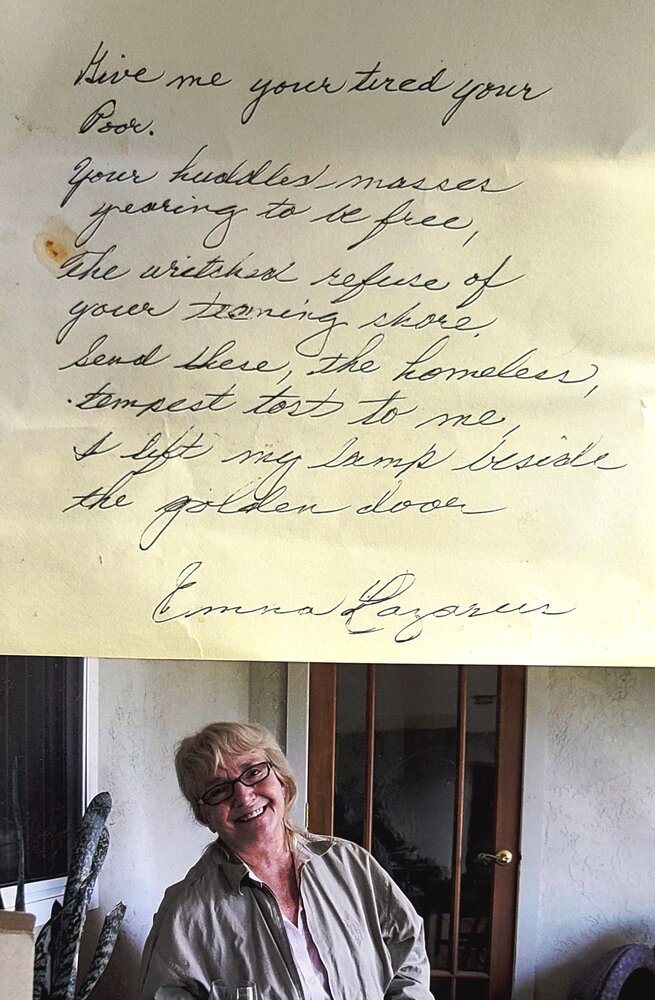 Give me your tired your
Poor.
Your huddled masses
yearing to be free,
The writched refuse of
your teming shore.
Send these, the homeless,
tempest tost to me,
I lift my lamp beside
the golden door
Emma Lazarus